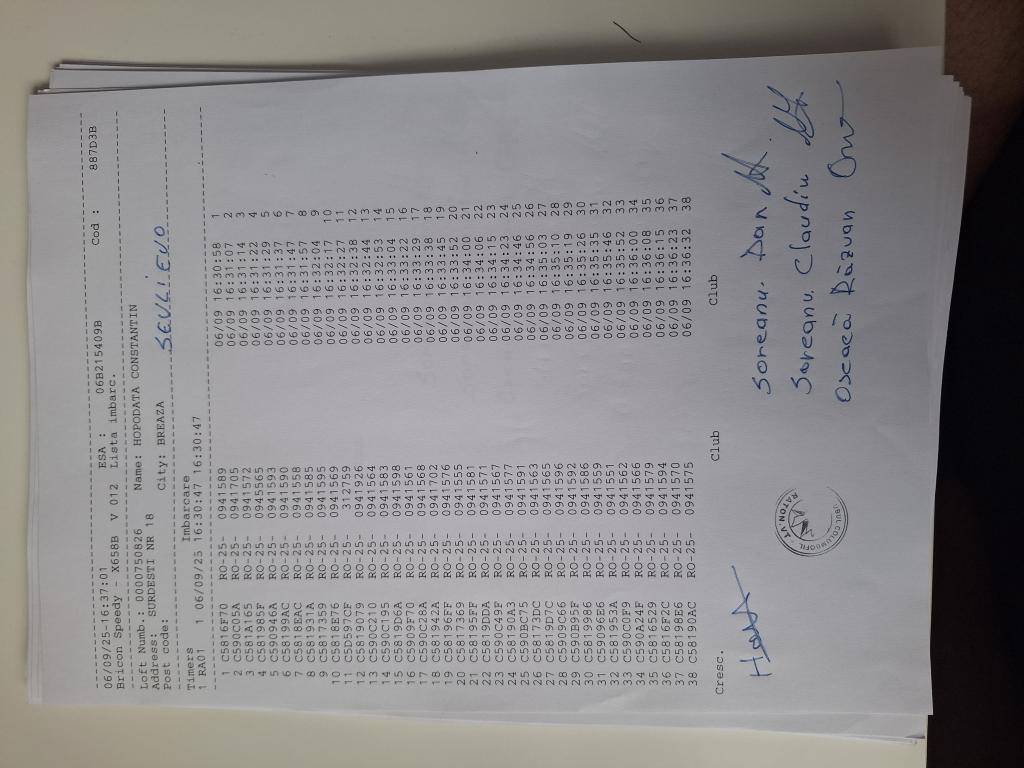 06/09/25-16:37:01 ESA : 06B215409B Cod : 887D3B
Bricon Speedy - X658B V 012 Lista imbarc.
Loft Numb.: 0000750826 Name: HOPODATA CONSTANTIN
Address: SURDESTI NR 18
Post code: City: BREAZA SEVLIEVO
Timers Imbarcare
1 RA01 1 06/09/25 16:30:47 16:30:47
1 C5816F70 RO-25- 0941589 06/09 16:30:58 1
2 C590C05A RO-25- 0941705 06/09 16:31:07 2
3 C581A165 RO-25- 0941572 06/09 16:31:14 3
4 C581985F RO-25- 0945565 06/09 16:31:22 4
5 C590946A RO-25- 0941593 06/09 16:31:29 5
6 C58199AC RO-25- 0941590 06/09 16:31:37 6
7 C5818EAC RO-25- 0941558 06/09 16:31:47 7
8 C581931A RO-25- 0941585 06/09 16:31:57 8
9 C5817389 RO-25- 0941595 06/09 16:32:04 9
10 C5818E76 RO-25- 0941569 06/09 16:32:17 10
11 C5D597CF RO-25- 312759 06/09 16:32:27 11
12 C5819079 RO-25- 0941926 06/09 16:32:38 12
13 C590C210 RO-25- 0941564 06/09 16:32:44 13
14 C590C195 RO-25- 0941583 06/09 16:32:53 14
15 C5819D6A RO-25- 0941598 06/09 16:33:04 15
16 C5909F70 RO-25- 0941561 06/09 16:33:22 16
17 C590C28A RO-25- 0941568 06/09 16:33:29 17
18 C581942A RO-25- 0941702 06/09 16:33:38 18
19 C58196EF RO-25- 0941576 06/09 16:33:45 19
20 C5817369 RO-25- 0941555 06/09 16:33:52 20
21 C58195FF RO-25- 0941581 06/09 16:34:00 21
22 C5819DDA RO-25- 0941571 06/09 16:34:06 22
23 C590C49F RO-25- 0941567 06/09 16:34:15 23
24 C58190A3 RO-25- 0941577 06/09 16:34:23 24
25 C590BC75 RO-25- 0941591 06/09 16:34:46 25
26 C58173DC RO-25- 0941563 06/09 16:34:56 26
27 C5819D7C RO-25- 0941565 06/09 16:35:03 27
28 C5909C66 RO-25- 0941596 06/09 16:35:10 28
29 C590B95F RO-25- 0941592 06/09 16:35:19 29
30 C5819986 RO-25- 0941586 06/09 16:35:26 30
31 C59096E6 RO-25- 0941559 06/09 16:35:35 31
32 C581953A RO-25- 0941551 06/09 16:35:46 32
33 C590C0F9 RO-25- 0941562 06/09 16:35:52 33
34 C590A24F RO-25- 0941566 06/09 16:36:00 34
35 C5816529 RO-25- 0941579 06/09 16:36:08 35
36 C5816F2C RO-25- 0941594 06/09 16:36:15 36
37 C58198E6 RO-25- 0941570 06/09 16:36:23 37
38 C58190AC RO-25- 0941575 06/09 16:36:32 38
Cresc. Club Club
Soreanu. Dan
Soreanu. Claudiu
Oseacă Răzvan